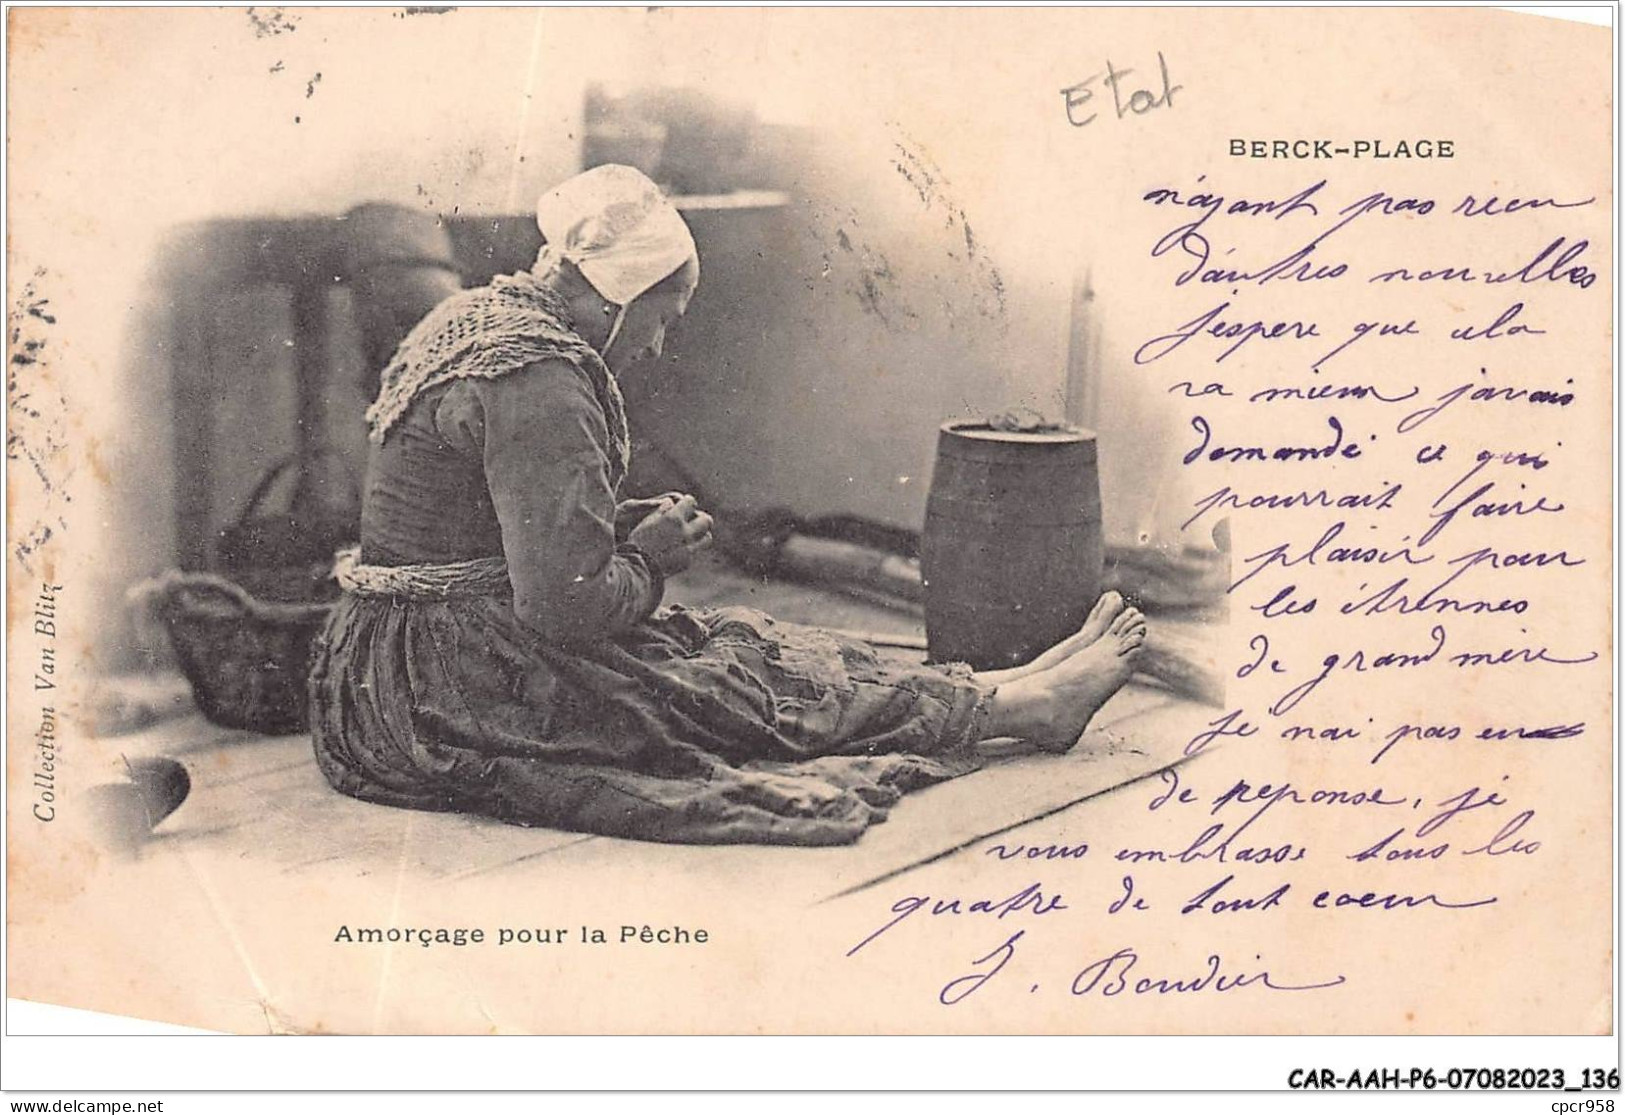 Etat
BERCK-PLAGE
n'ayant pas recu
d'autres nouvelles
j'espere que cela
va mieux javais
demandé ce qui
pourrait faire
plaisir pour
les étrennes
de grand mère
je nai pas eu
de reponse, je
vous embrasse tous les
quatre de tout coeur
J. Boudier
Amorçage pour la Pêche
Collection Van Blitz
CAR-AAH-P6-07082023_136
cpcr958